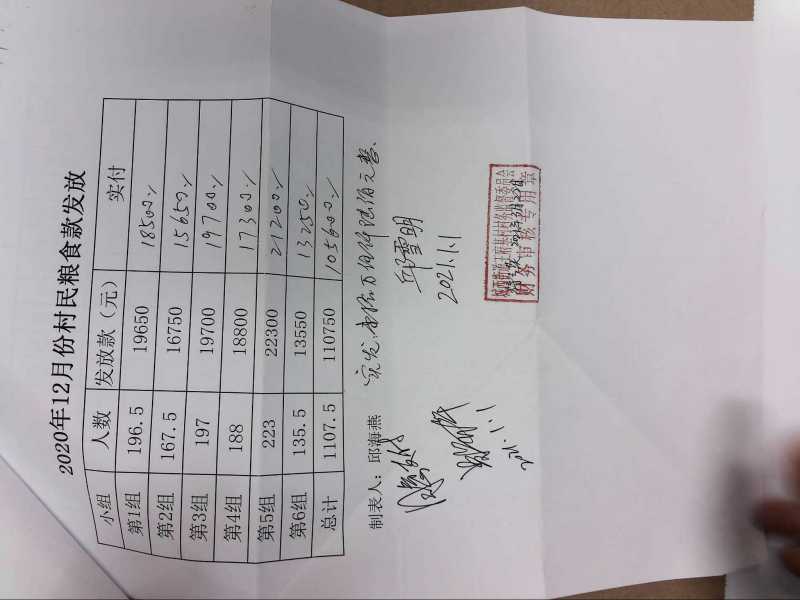 2020年12月份村民粮食款发放
小组 人数 发放款（元） 实付
第1组 196.5 19650 18500%
第2组 167.5 16750 15650%
第3组 197 19700 19700%
第4组 188 18800 17300%
第5组 223 22300 21200%
第6组 135.5 13550 13250%
总计 1107.5 110750 105600%
制表人：邱海燕
邱雪明
2021.1.1
2021.1.1
财务审核专用章